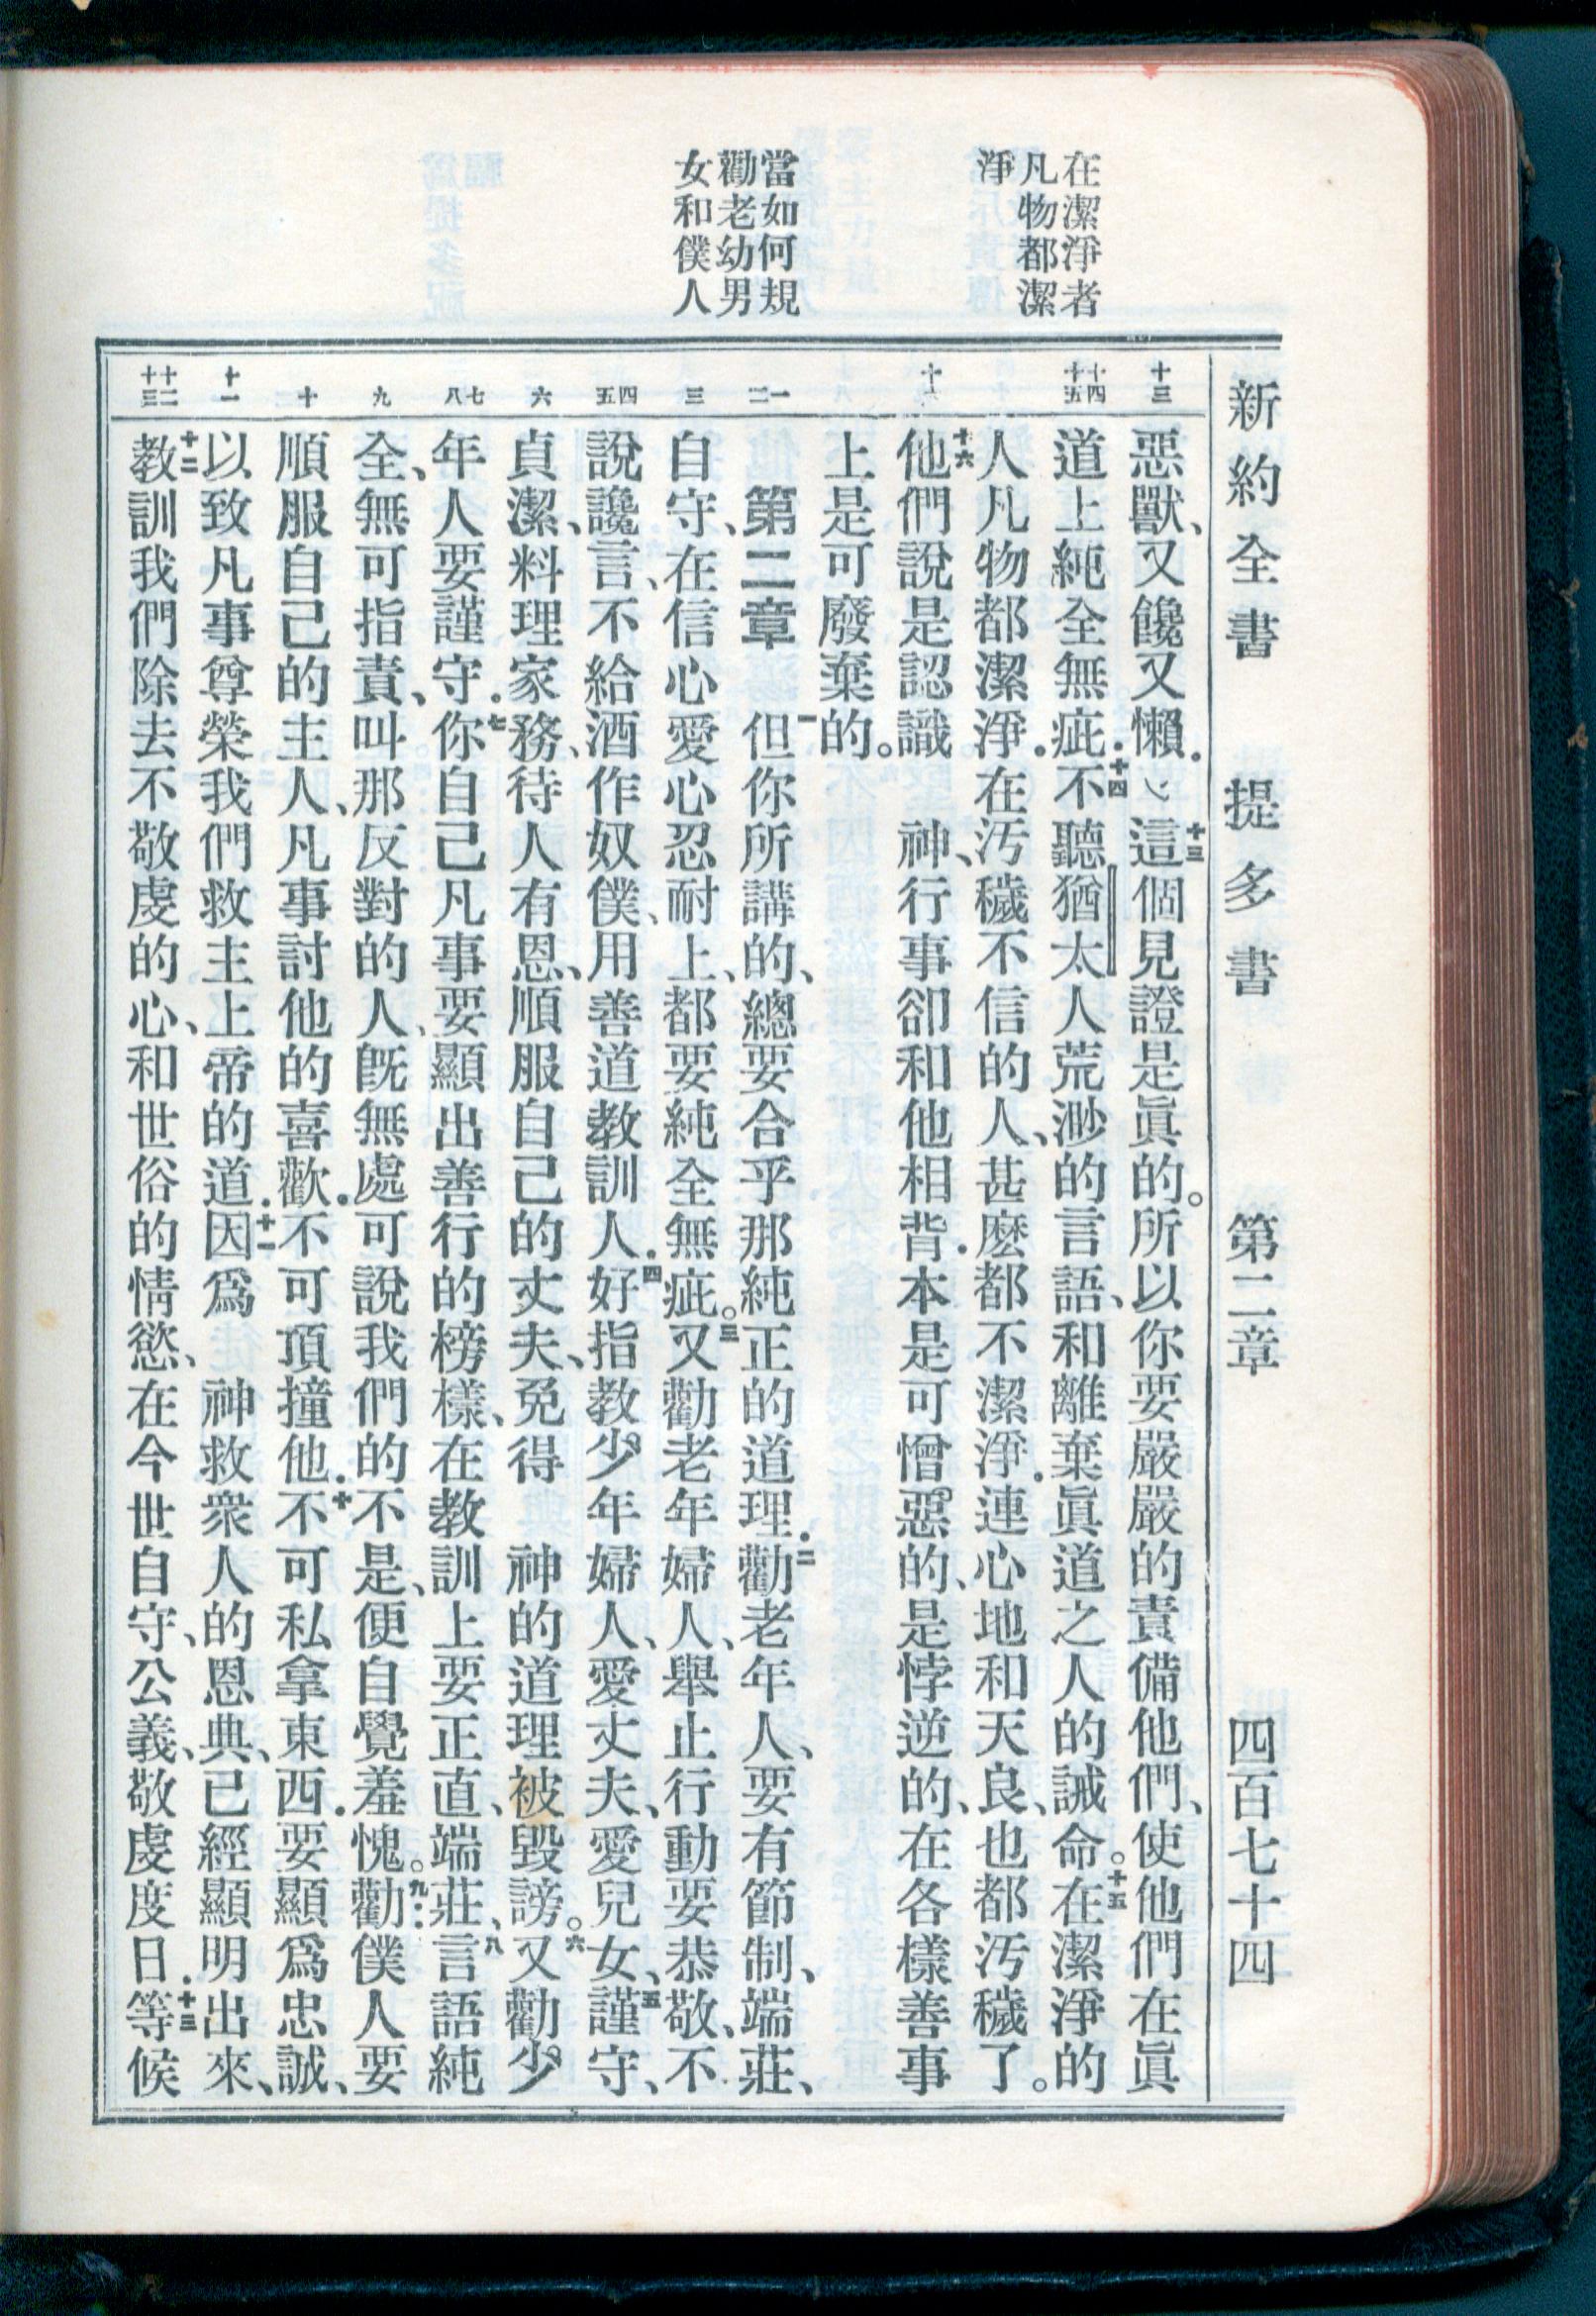 新約全書　提多書　第二章　四百七十四
在潔淨者
凡物都潔
淨
當如何規
勸老幼男
女和僕人
十三
十四
十五
十六
一
二
三
四
五
六
七
八
九
十
十一
十二
十三
惡獸、又饞又懶．︶十三這個見證是眞的。所以你要嚴嚴的責備他們、使他們在眞
道上純全無疵．十四不聽猶太人荒渺的言語、和離棄眞道之人的誡命。十五在潔淨的
人凡物都潔淨．在汚穢不信的人、甚麽都不潔淨．連心地和天良、也都汚穢了。
十六他們說是認識　神、行事卻和他相背．本是可憎惡的、是悖逆的、在各樣善事
上是可廢棄的。
第二章　一但你所講的、總要合乎那純正的道理．二勸老年人、要有節制、端莊、
自守、在信心愛心忍耐上、都要純全無疵。三又勸老年婦人、舉止行動要恭敬、不
說讒言、不給酒作奴僕、用善道教訓人．四好指教少年婦人、愛丈夫、愛兒女、五謹守、
貞潔、料理家務、待人有恩、順服自己的丈夫、免得　神的道理被毀謗。六又勸少
年人要謹守．七你自己凡事要顯出善行的榜樣、在教訓上要正直、端莊、八言語純
全、無可指責、叫那反對的人、旣無處可說我們的不是、便自覺羞愧。九勸僕人要
順服自己的主人、凡事討他的喜歡．不可頂撞他．十不可私拿東西．要顯爲忠誠、
以致凡事尊榮我們救主上帝的道．十一因爲　神救衆人的恩典、已經顯明出來、
十二教訓我們除去不敬虔的心、和世俗的情慾、在今世自守、公義、敬虔度日．十三等候